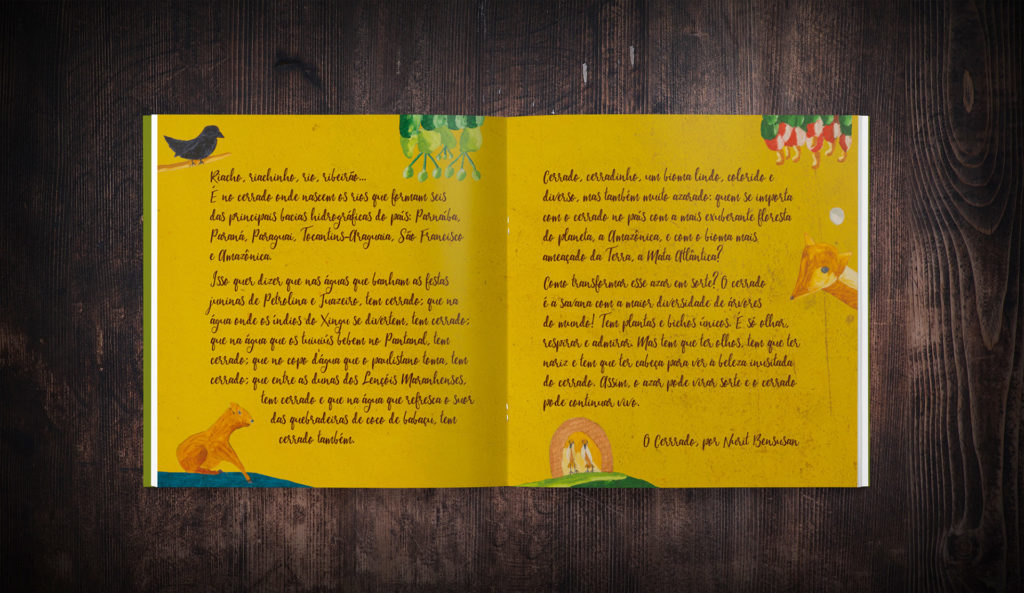 Riacho, riachinho, rio, ribeirão...
É no cerrado onde nascem os rios que formam seis
das principais bacias hidrográficas do país: Parnaíba,
Paraná, Paraguai, Tocantins-Araguaia, São Francisco
e Amazônica.
Isso quer dizer que nas águas que banham as festas
juninas de Petrolina e Juazeiro, tem cerrado; que na
água onde os índios do Xingu se divertem, tem cerrado;
que na água que os tuiuiús bebem no Pantanal, tem
cerrado; que no copo d'água que o paulistano toma, tem
cerrado; que entre as dunas dos Lençóis Maranhenses,
tem cerrado e que na água que refresca o suor
das quebradeiras de coco de babaçu, tem
cerrado também.
Cerrado, cerradinho, um bioma lindo, colorido e
diverso, mas também muito azarado: quem se importa
com o cerrado no país com a mais exuberante floresta
do planeta, a Amazônica, e com o bioma mais
ameaçado da Terra, a Mata Atlântica?
Como transformar esse azar em sorte? O cerrado
é a savana com a maior diversidade de árvores
do mundo! Tem plantas e bichos únicos. É só olhar,
respirar e admirar. Mas tem que ter olhos, tem que ter
nariz e tem que ter cabeça para ver a beleza inusitada
do cerrado. Assim, o azar pode virar sorte e o cerrado
pode continuar vivo.
O Cerrrado, por Nurit Bensusan